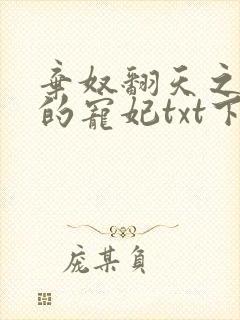 弃奴翻天之
的宠妃txt下
庞某负